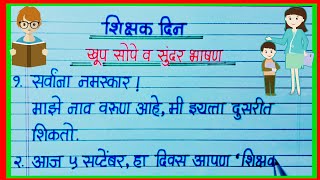 शिक्षक दिन
खूप सोपे व सुंदर भाषण
१. सर्वांना नमस्कार !
माझे नाव वरुण आहे, मी इयत्ता दुसरीत
शिकतो.
२. आज ५ सप्टेंबर, हा दिवस आपण 'शिक्षक